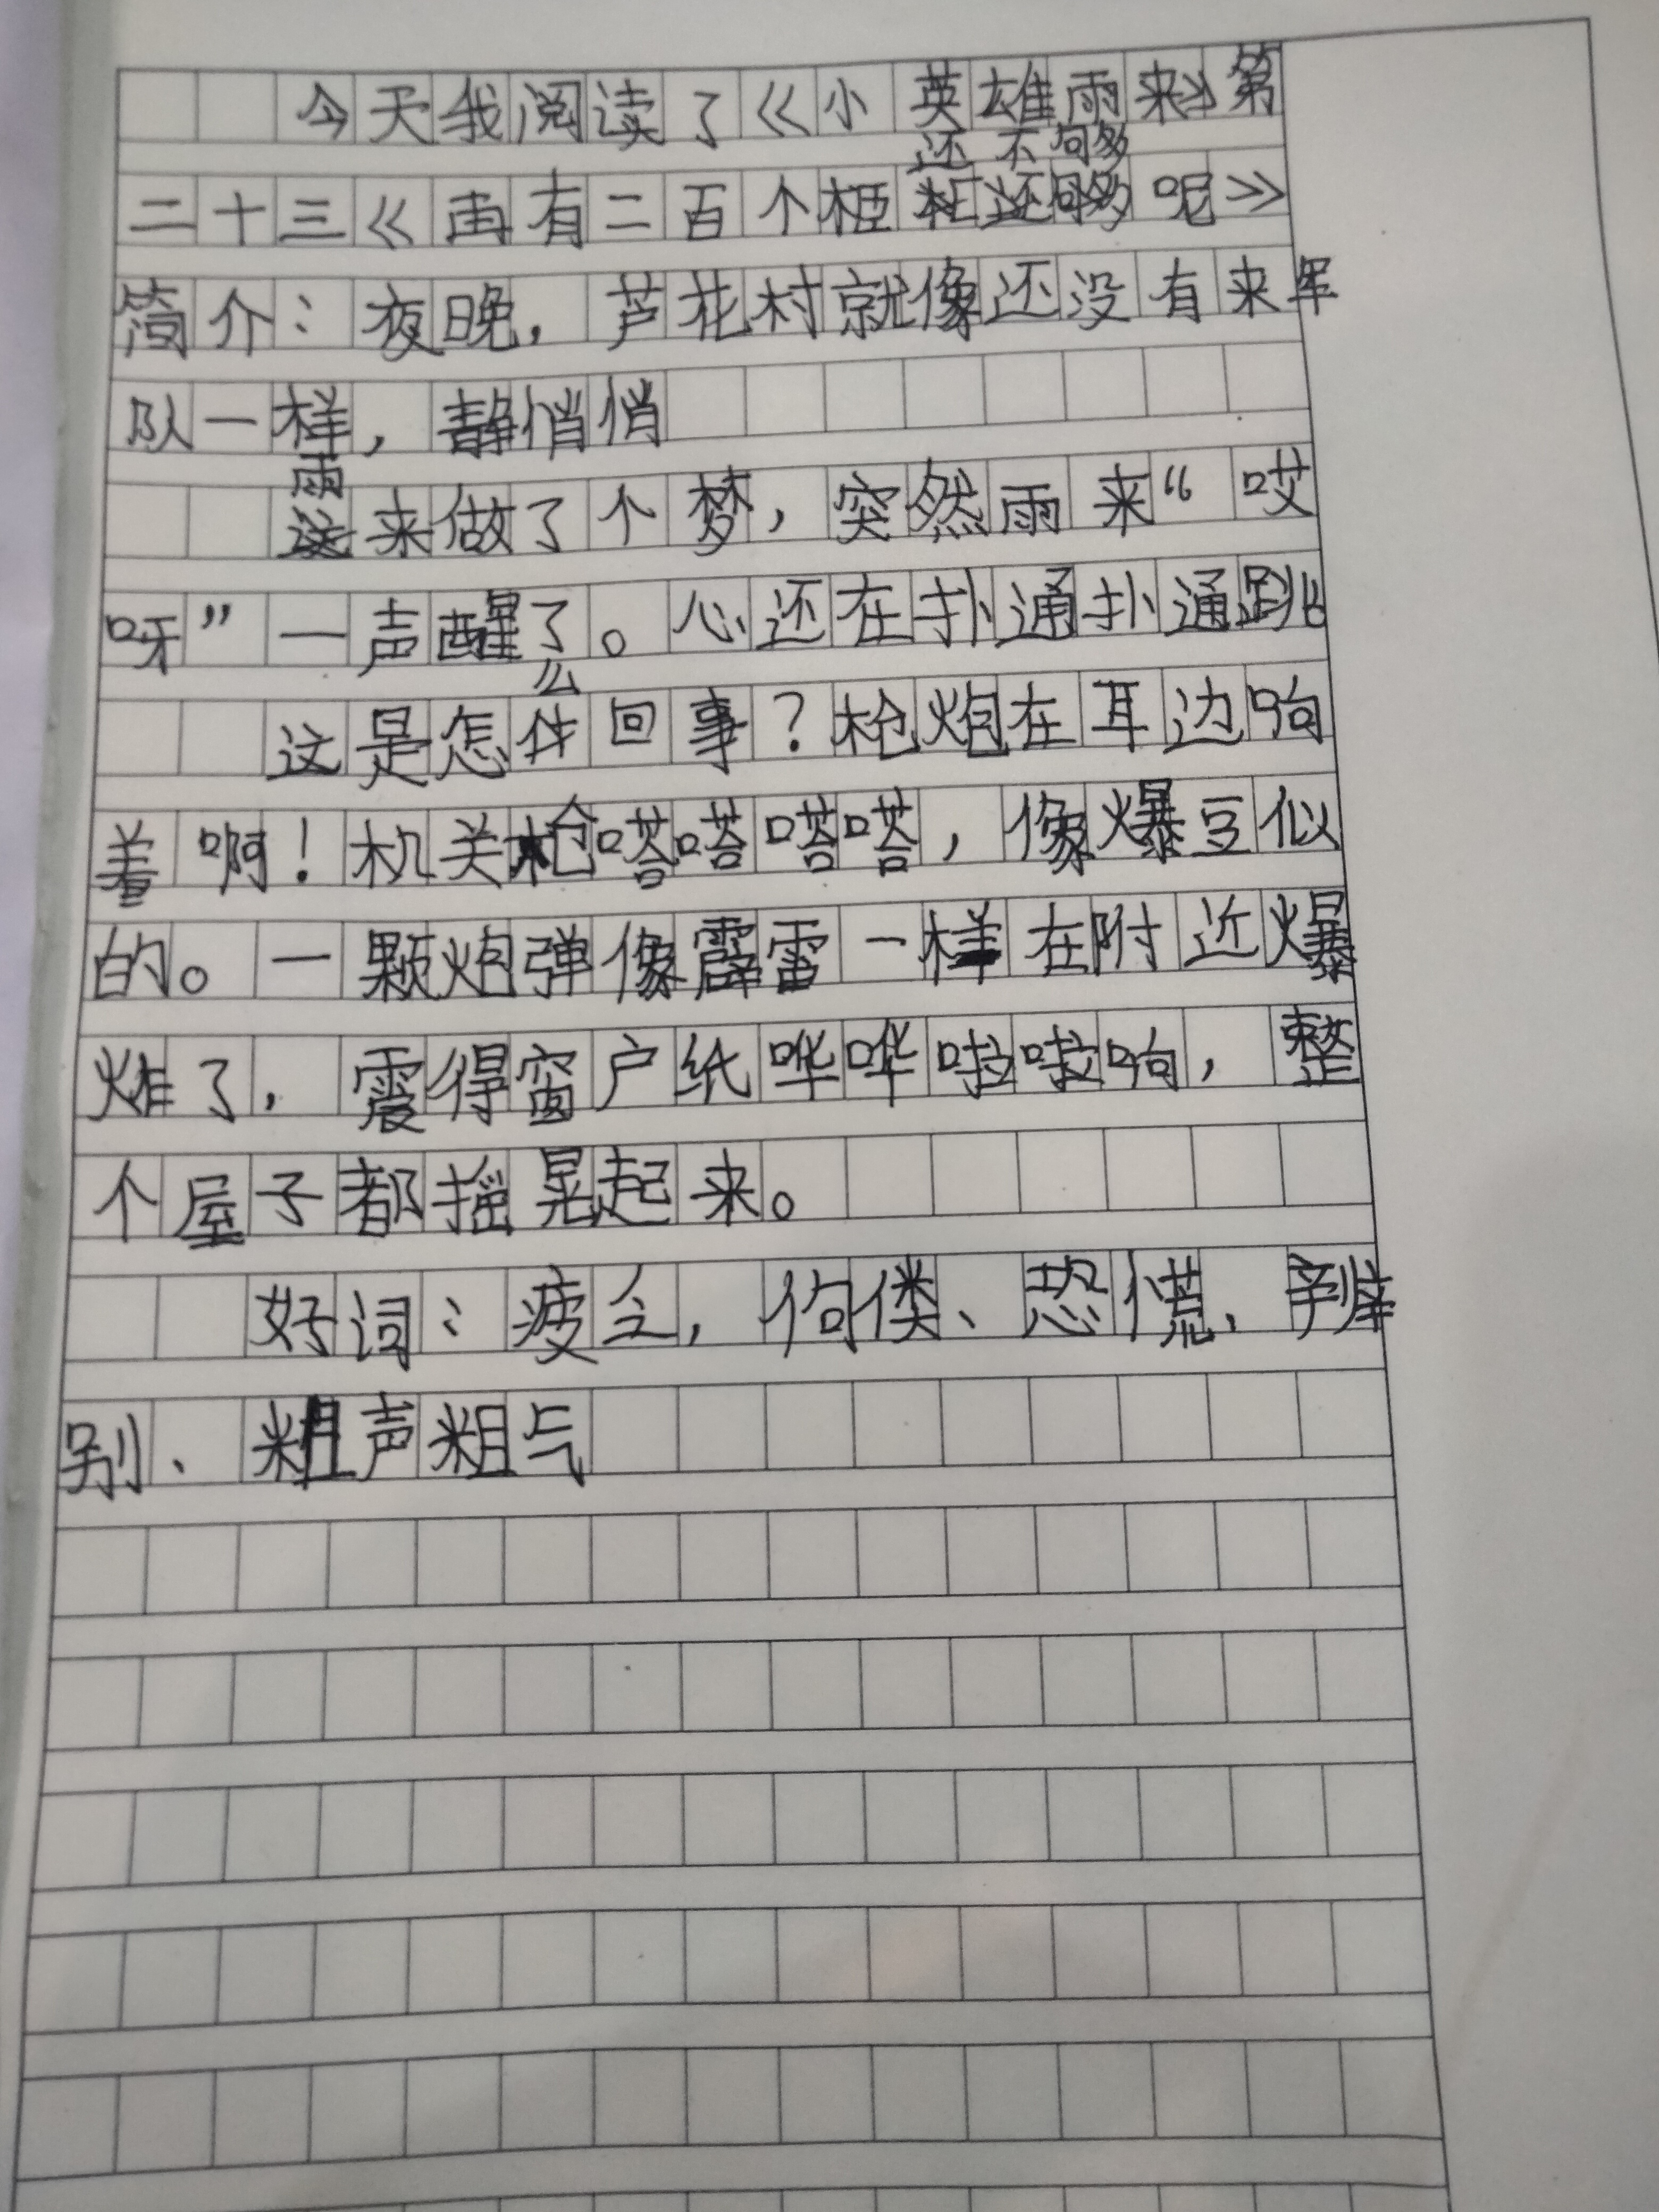 今天我阅读了《小英雄雨来》第
还不够
二十三《再有二百个桓呢》
简介：夜晚，芦花村就像还没有来军
队一样，静悄悄
雨
来做了个梦，突然雨来“哎
呀”一声醒了。心还在扑通扑通跳
么
这是怎件回事？枪炮在耳边响
着啊！机关枪嗒嗒嗒嗒，像爆豆似
的。一颗炮弹像霹雷一样在附近爆
炸了，震得窗户纸哗哗啦啦响，整
个屋子都摇晃起来。
好词：疲乏，佝偻、恐慌、
别、粗声粗气